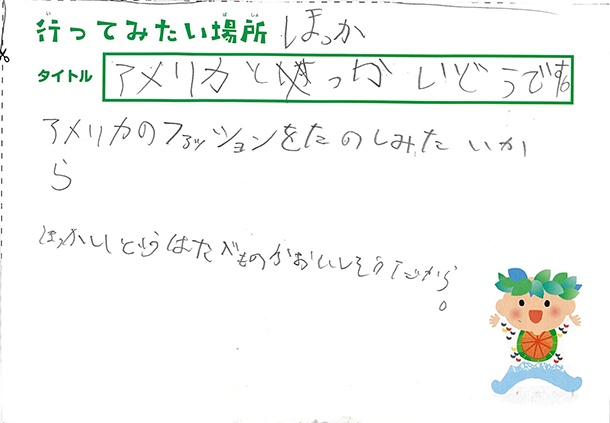 行ってみたい場所 ほっか
タイトル アメリカとほっかいどうです。
アメリカのファッションをたのしみたいか
ら
ほっかいどうはたべものがおいしそうだから
。